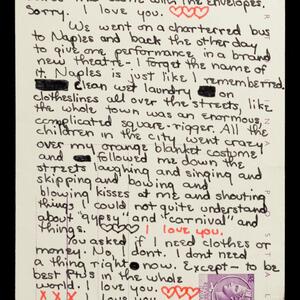 came with the envelopes.
Sorry. I love you.
We went on a charterred bus
to Naples and back the other day
to give one performance in a brand
new theatre - I forget the name of
it. Naples is just like I remembered.
clean wet laundry on
clotheslines all over the streets, like
the whole town was an enormous,
complicated square-rigger. All the
children in the city went crazy
over my orange blanket costume
and followed me down the
streets laughing and singing and
skipping and bowing and
blowing kisses at me and shouting
things I could not quite understand
about "gypsy" and "carnival" and
things. I love you.
You asked if I need clothes or
money. No, I dont. I dont need
a thing right now. Except - to be
best in the whole
world. I love you
XXX I love you